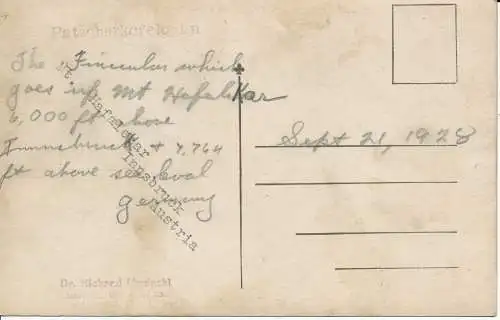 Patscherkofelbahn
The Finicular which
goes up Mt Hafelekar
6,000 ft above
Innnsbruck + 7,764
ft above sea level
germany
Mt. Hafelekar
Innsbruck
Austria
Sept 21, 1928
Dr. Richard